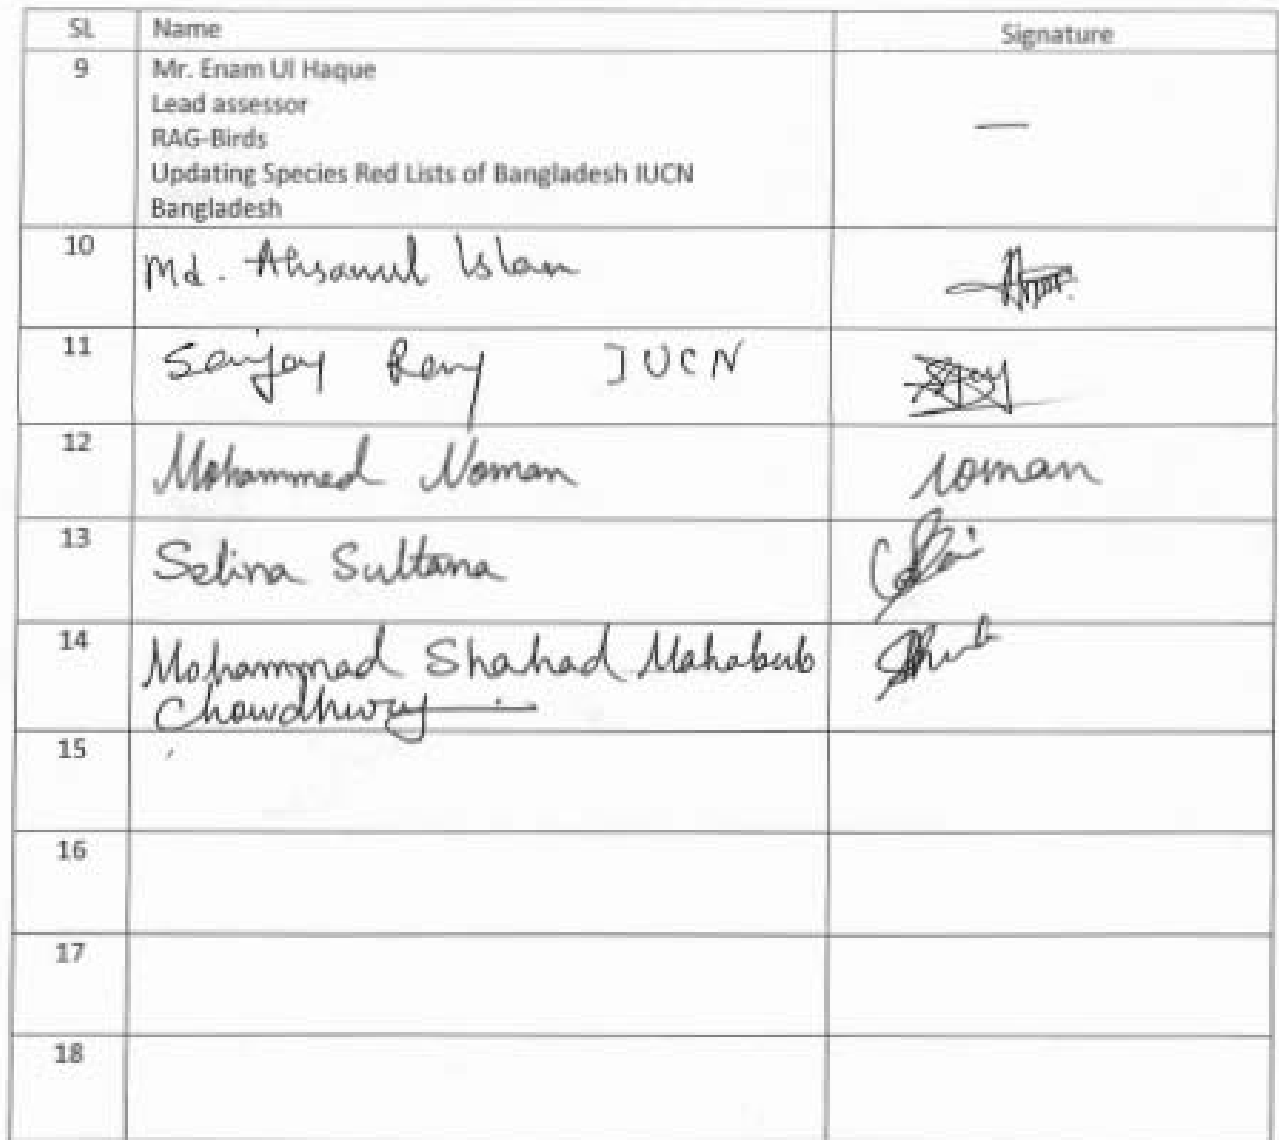 SL Name Signature
9 Mr. Enam Ul Haque
Lead assessor
RAG-Birds —
Updating Species Red Lists of Bangladesh IUCN
Bangladesh
10 Md. Ahsanul Islam
11 Sanjay Roy IUCN
12 Mohammed Noman noman
13 Selina Sultana
14 Mohammad Shahad Mahabub
Chowdhury
15
16
17
18